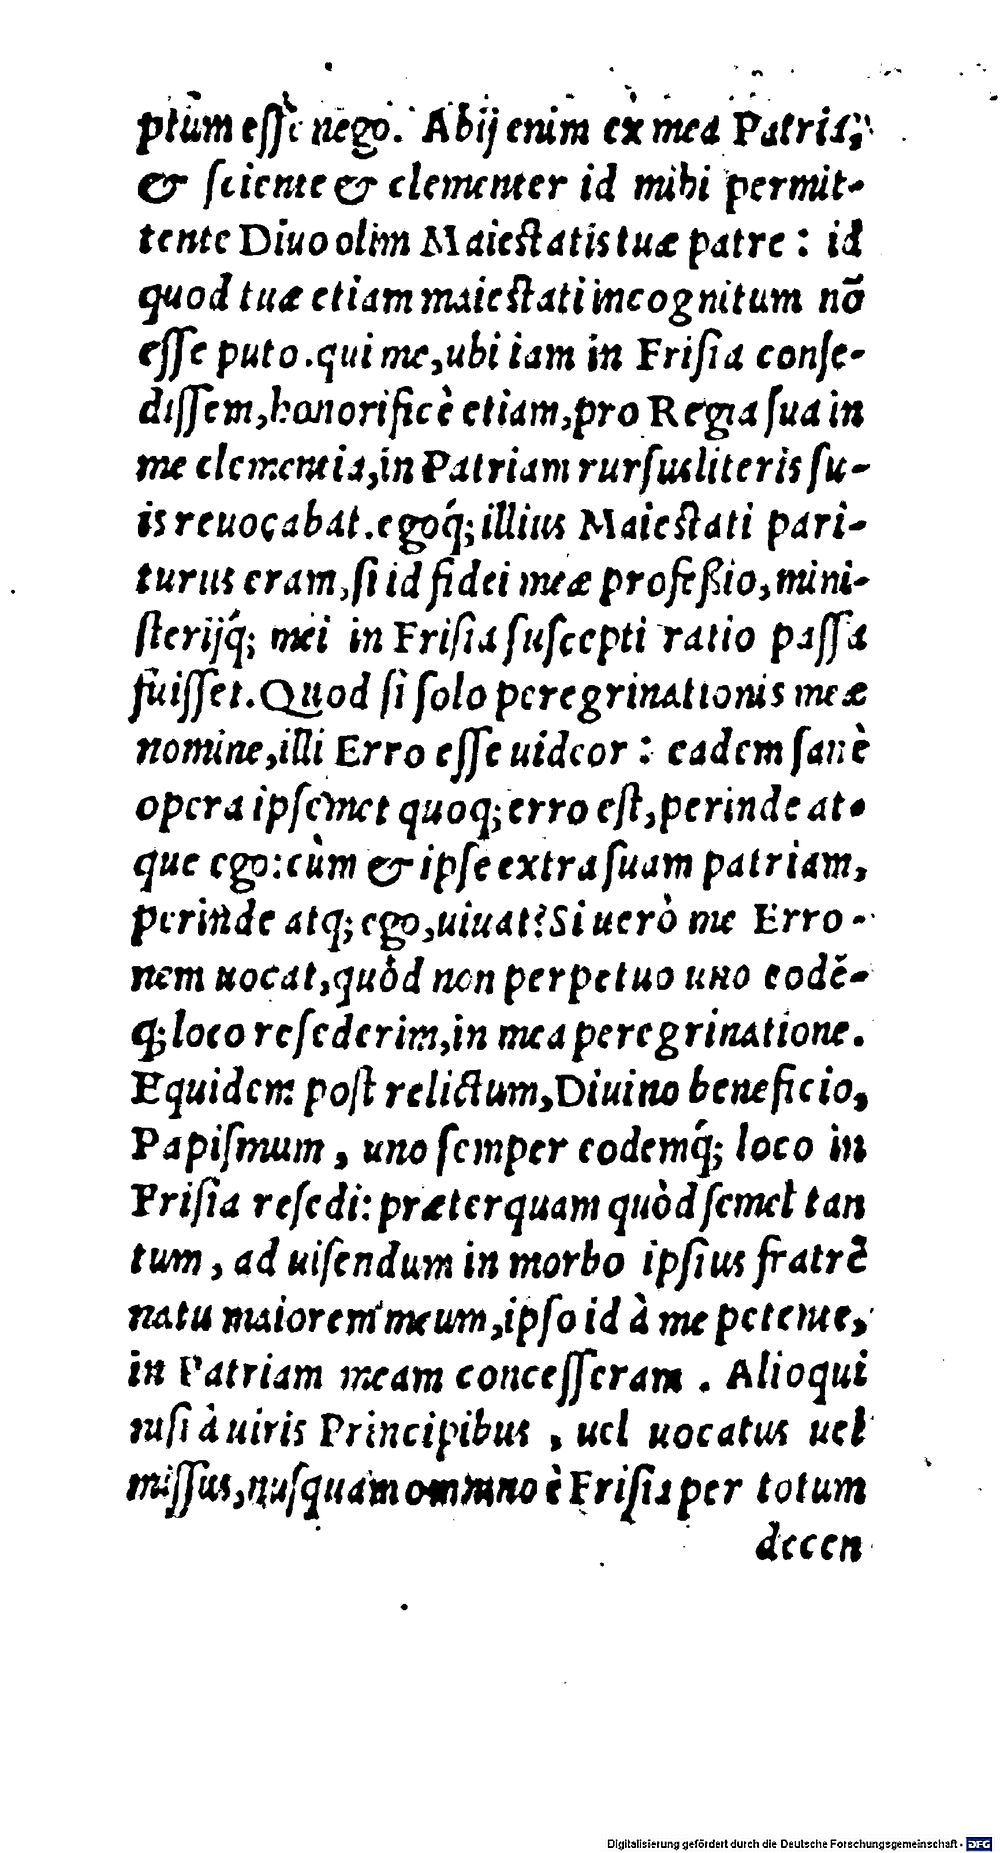 ptum eſſe nego. Abij enim ex mea Patria,
& ſciente & clementer id mihi permit-
tente Diuo olim Maieſtatis tuæ patre : id
quod tuæ etiam maieſtati incognitum nõ
eſſe puto. qui me, ubi iam in Friſia conſe-
diſſem, honorificè etiam, pro Regia ſua in
me clementia, in Patriam rurſus literis ſu-
is reuocabat. egoq́; illius Maieſtati pari-
turus eram, ſi id fidei meæ profeßio, mini-
ſterijq́; mei in Friſia ſuſcepti ratio paſſa
fuiſſet. Quod ſi ſolo peregrinationis meæ
nomine, illi Erro eſſe uideor : eadem ſanè
opera ipſemet quoq; erro eſt, perinde at-
que ego: cùm & ipſe extra ſuam patriam,
perinde atq; ego, uiuat? Si uerò me Erro-
nem uocat, quòd non perpetuo uno eodẽ-
q; loco reſederim, in mea peregrinatione.
Equidem poſt relictum, Diuino beneficio,
Papiſmum, uno ſemper eodemq́; loco in
Friſia reſedi: præterquam quòd ſemel tan
tum, ad uiſendum in morbo ipſius fratrẽ
natu maiorem meum, ipſo id à me petente,
in Patriam meam conceſſeram. Alioqui
niſi à uiris Principibus, uel uocatus uel
miſſus, nuſquam omnino è Friſia per totum
decen
Digitalisierung gefördert durch die Deutsche Forschungsgemeinschaft - DFG